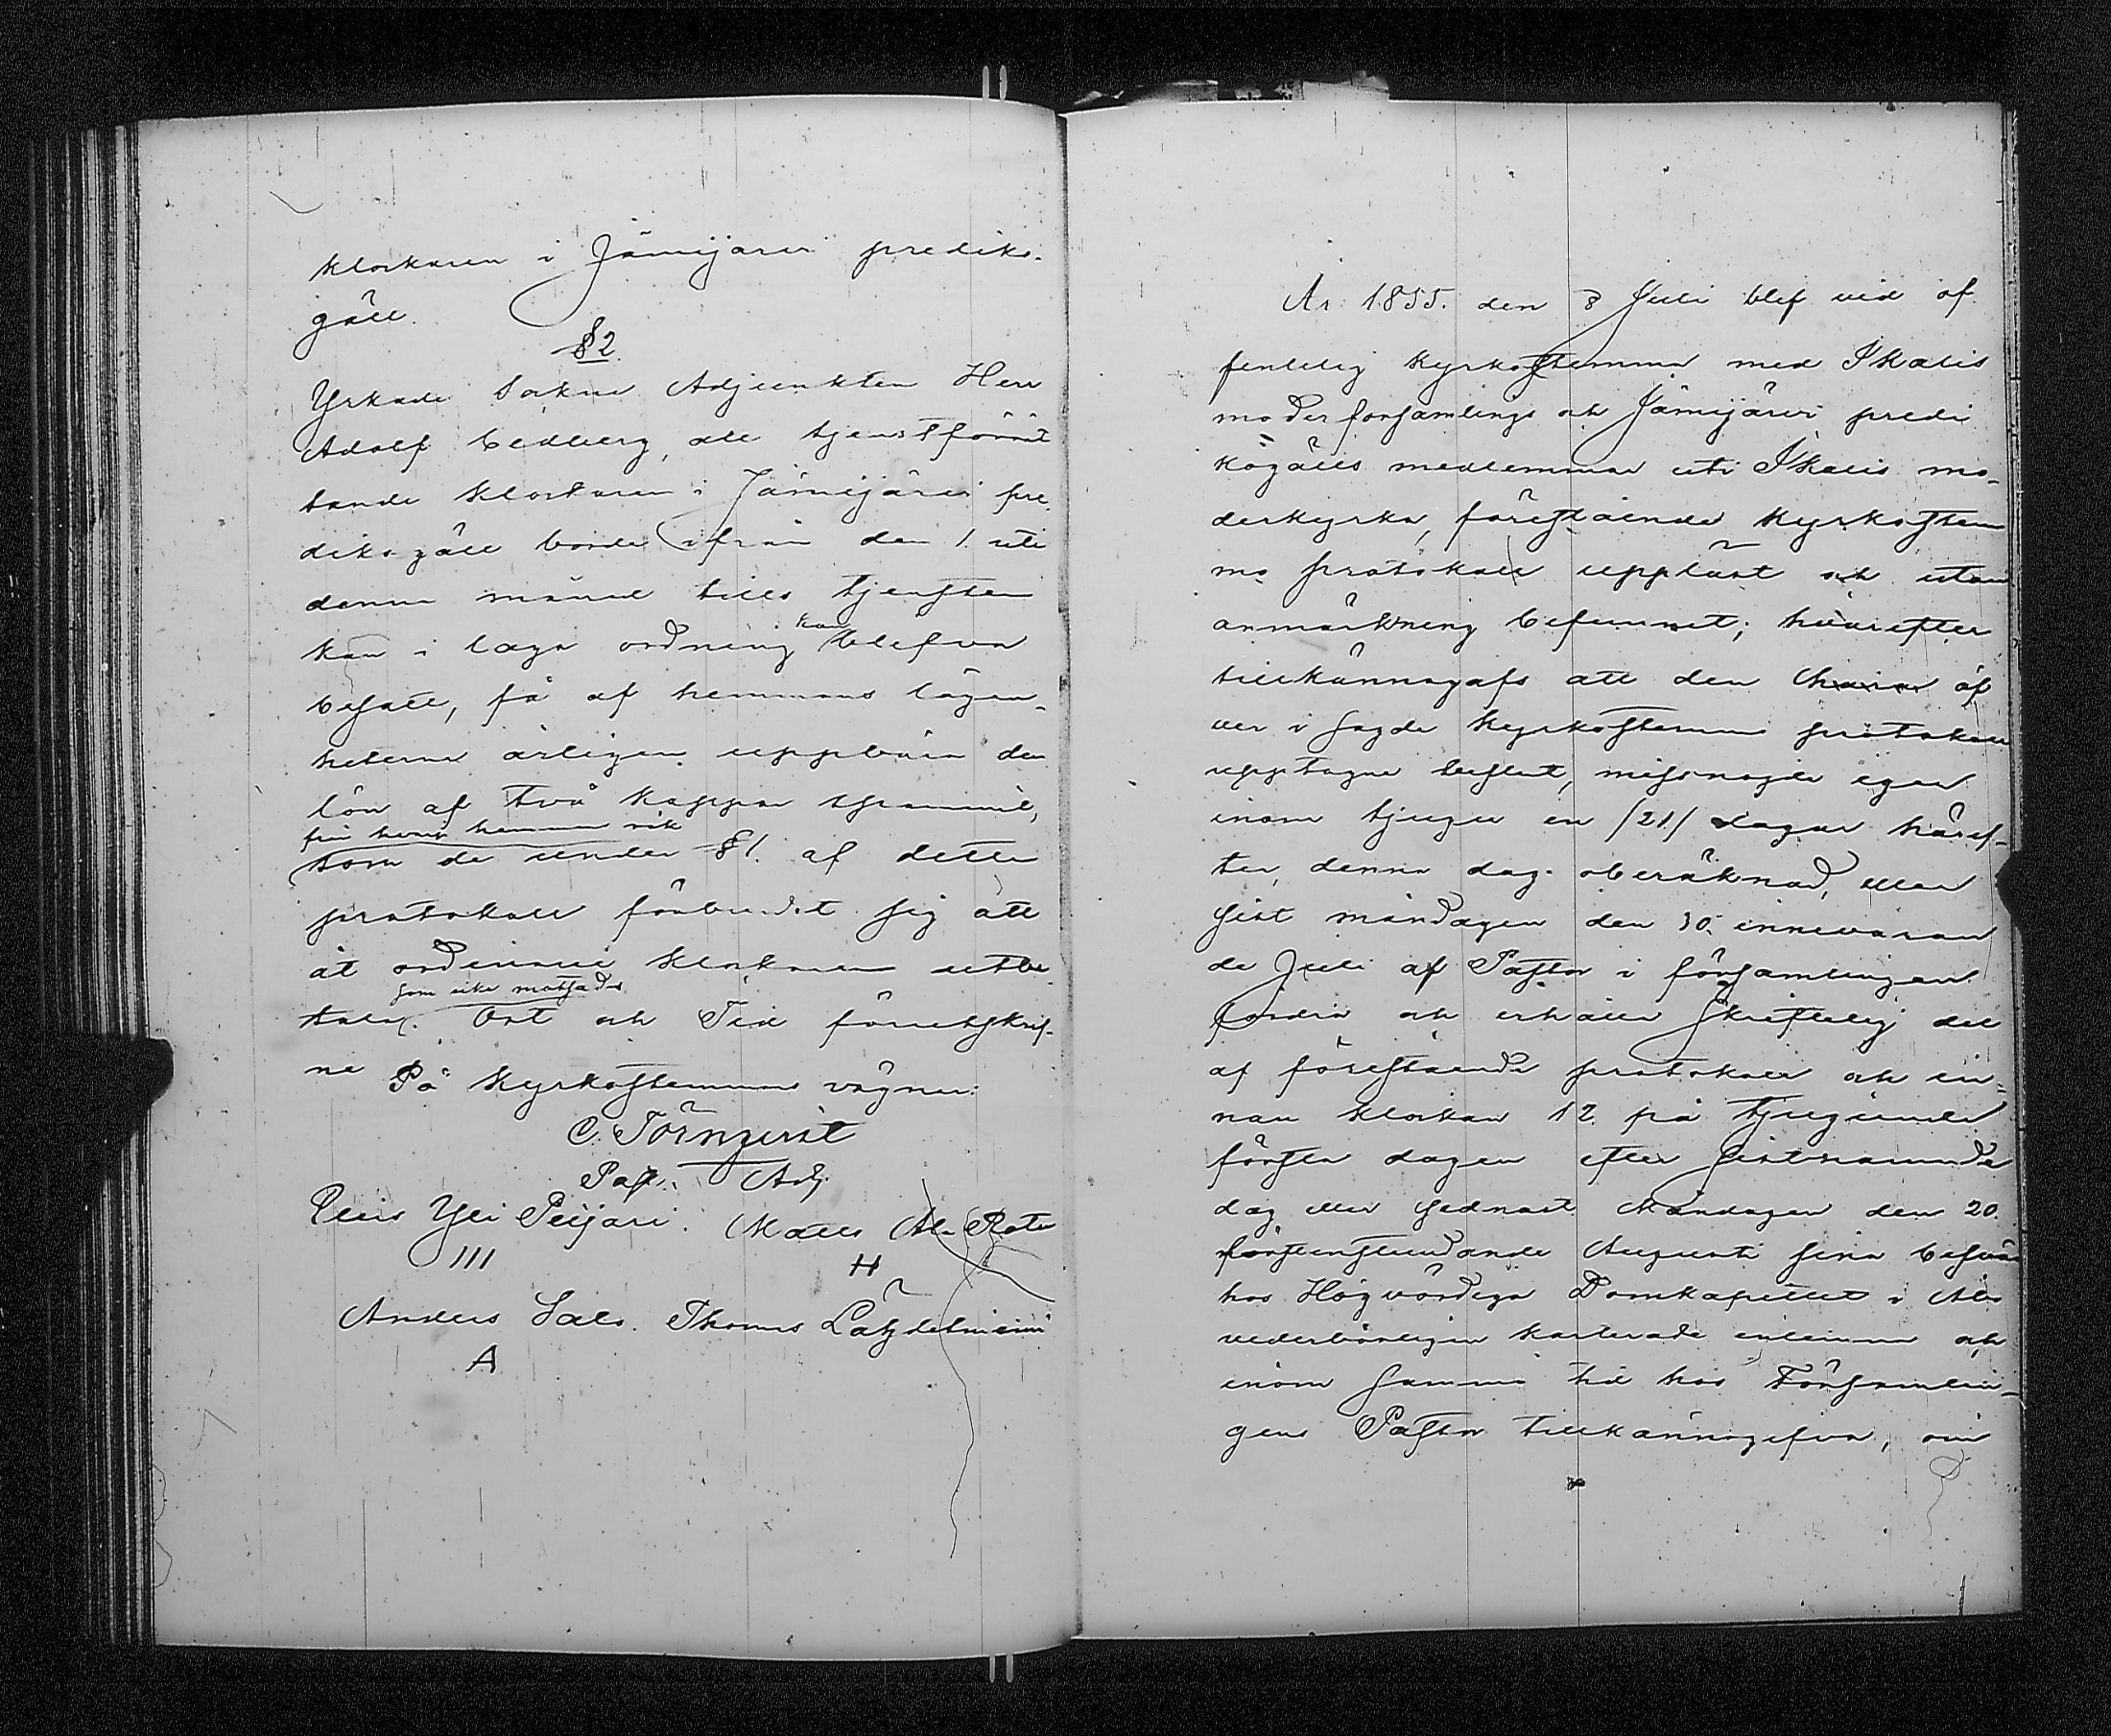 klockaren i Jämijärvi prediko-
gäll.
§2.
Yrkade Sockne Adjunkten Herr
Adolf Cedberg, att tjenstförrät
tande klockaren i Jämijärvi pre
diko gäll borde ifrån den 1. uti
denna månad tills tjensten
kan i laga ordning kan blifva
besatt, få af hemmans lägen-
heterna årligen uppbära den
lön af två kappar spanmål,
från hvarje hemman rök
som de under §1. af detta
protokoll förbundit sig att
åt ordinarie klockaren utbe
som icke motsades
tala. Ort och Tid förutskrif-
ne
På Kyrkostemmans vägnar:
C. Törnqvist
Past. Adj.
Yli Peijari. Matts Ala Rotu
III H
Anders Salo. Thomas
A
År 1855. den 8 Juli blef vid of
fentelig Kyrkostemma med Ikalis
moderforsamlings och Jämijärvi predi
kogälls medlemmar uti Ikalis mo-
derkyrka, förestående Kyrkostem
mo protokoll uppläst och utan
anmärkning befunnet; hvarefter
tillkännagafs att den öf
ver i sagde Kyrkostemmo protokoll
upptagne beslut, missnöjde egen
inom tjugu en /21/ dagar häref-
ter, denna dag oberäknad, eller
sist måndagen den 30. innevaran
de Juli af Pastor i församlingen
fordra och erhålla Skriftelig del
af förestående protokoll och in-
nan klockan 12. på tjugunde
första dagen efter sistnämnda
dag eller sednast Måndagen den 20.
förstinstundande Augusti sina besvär
hos Högvördiga Domkapitlet i Åbo
vederbörligen karterade inlemna och
inom samma tid hos Församlin-
gens Pastor tillkännagifva, om